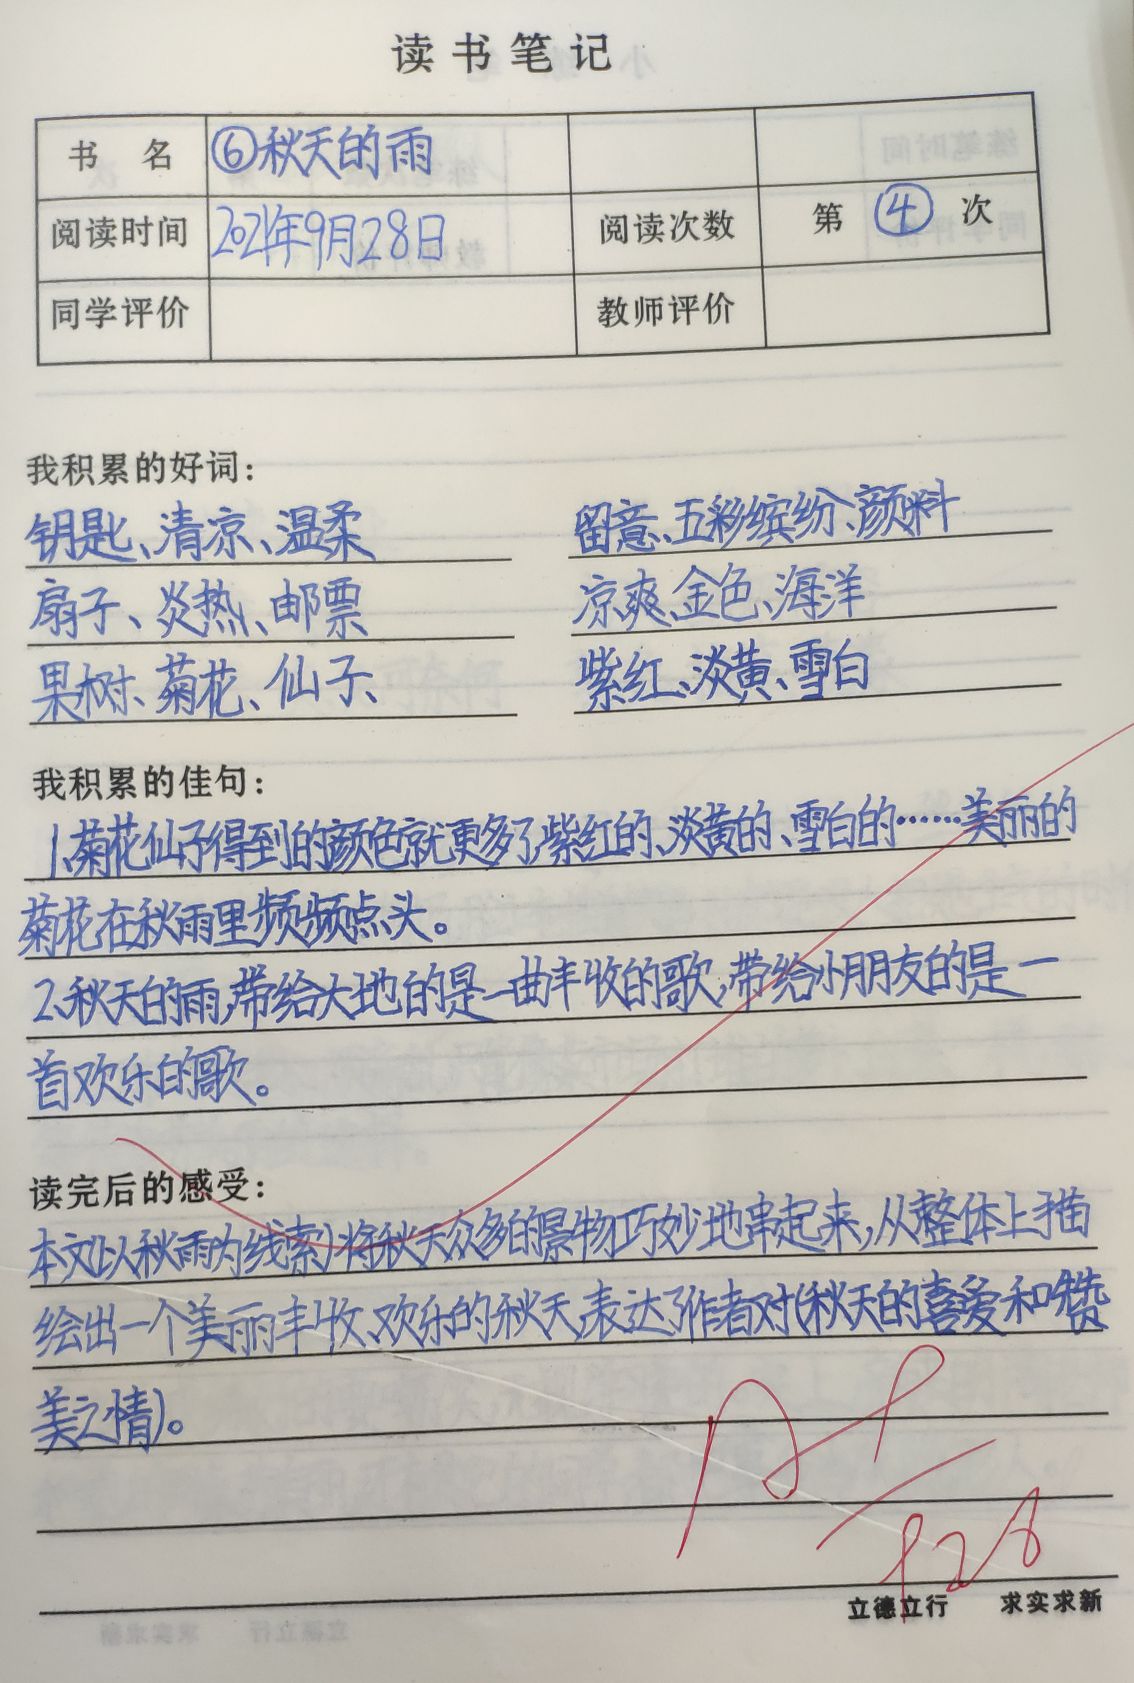 读书笔记
书 名 ⑥秋天的雨
阅读时间 2021年9月28日 阅读次数 第 ④ 次
同学评价 教师评价
我积累的好词：
钥匙、清凉、温柔 留意、五彩缤纷、颜料
扇子、炎热、邮票 凉爽、金色、海洋
果树、菊花、仙子、 紫红、淡黄、雪白
我积累的佳句：
1、菊花仙子得到的颜色就更多了,紫红的、淡黄的、雪白的……美丽的
菊花在秋雨里频频点头。
2、秋天的雨,带给大地的是一曲丰收的歌,带给小朋友的是一
首欢乐的歌。
读完后的感受：
本文(以秋雨为线索)将秋天众多的景物巧妙地串起来,从整体上描
绘出一个美丽丰收、欢乐的秋天,表达了作者对(秋天的喜爱和赞
美之情)。
立德立行 求实求新